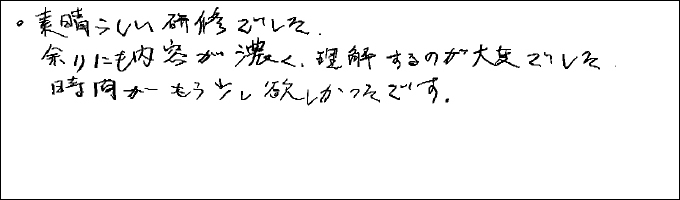 ・素晴らしい研修でした.
余りにも内容が濃く、理解するのが大変でした.
時間がもう少し欲しかったです.